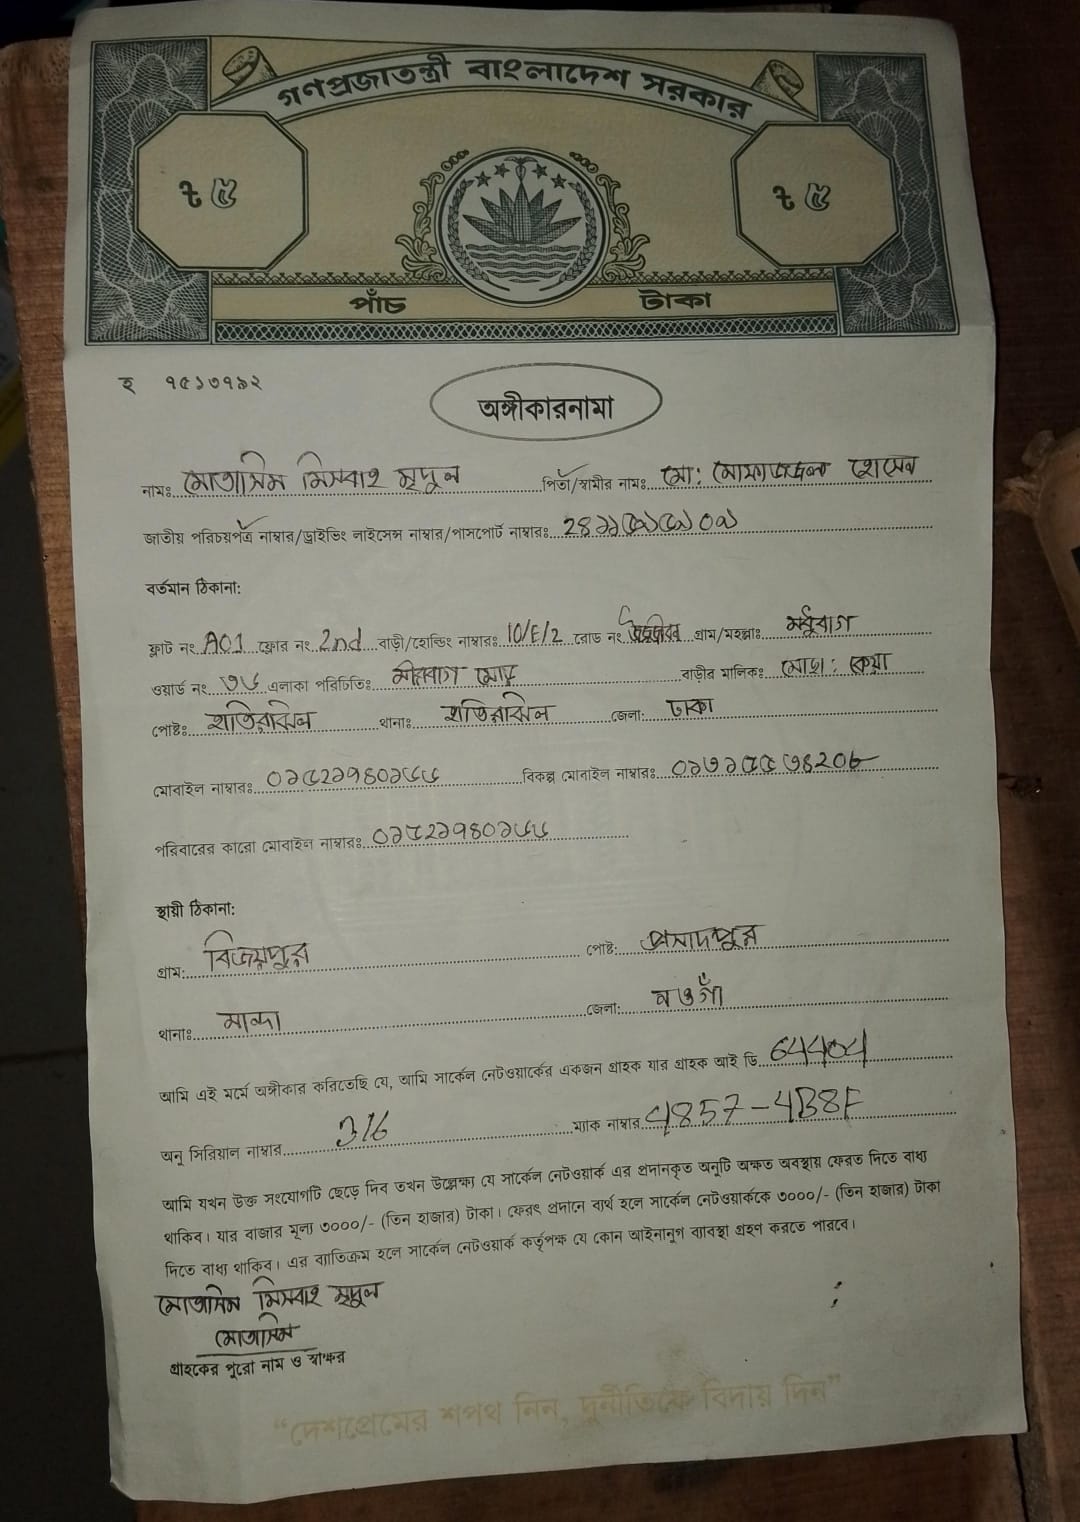 গণপ্রজাতন্ত্রী বাংলাদেশ সরকার
৳ ৫
৳ ৫
পাঁচ টাকা
হ ৭৫১৩৭৯২
অঙ্গীকারনামা
নামঃ মোতাসিম মিসবাহ মৃদুল পিতা/স্বামীর নামঃ মো: মোফাজ্জল হোসেন
জাতীয় পরিচয়পত্র নাম্বার/ড্রাইভিং লাইসেন্স নাম্বার/পাসপোর্ট নাম্বারঃ
বর্তমান ঠিকানা:
ফ্লাট নং A01 ফ্লোর নং 2nd বাড়ী/হোল্ডিং নাম্বারঃ 10/E/2 রোড নং গ্রাম/মহল্লাঃ মধুবাগ
ওয়ার্ড নং ৩৬ এলাকা পরিচিতিঃ মীরবাগ মোড় বাড়ীর মালিকঃ
পোষ্টঃ হাতিরঝিল থানাঃ হাতিরঝিল জেলা: ঢাকা
মোবাইল নাম্বারঃ ০১৫২১৭৪০১৬৬ বিকল্প মোবাইল নাম্বারঃ
পরিবারের কারো মোবাইল নাম্বারঃ ০১৫২১৭৪০১৬৬
স্থায়ী ঠিকানা:
গ্রাম: বিজয়পুর পোষ্ট: প্রসাদপুর
থানাঃ মান্দা জেলা: নওগাঁ
আমি এই মর্মে অঙ্গীকার করিতেছি যে, আমি সার্কেল নেটওয়ার্কের একজন গ্রাহক যার গ্রাহক আই ডি 64404
অনু সিরিয়াল নাম্বার 316 ম্যাক নাম্বার 4857-4B8F
আমি যখন উক্ত সংযোগটি ছেড়ে দিব তখন উল্লেক্ষ্য যে সার্কেল নেটওয়ার্ক এর প্রদানকৃত অনুটি অক্ষত অবস্থায় ফেরত দিতে বাধ্য
থাকিব। যার বাজার মূল্য ৩০০০/- (তিন হাজার) টাকা। ফেরৎ প্রদানে ব্যর্থ হলে সার্কেল নেটওয়ার্ককে ৩০০০/- (তিন হাজার) টাকা
দিতে বাধ্য থাকিব। এর ব্যাতিক্রম হলে সার্কেল নেটওয়ার্ক কর্তৃপক্ষ যে কোন আইনানুগ ব্যাবস্থা গ্রহণ করতে পারবে।
মোতাসিম মিসবাহ মৃদুল
মোতাসিম
গ্রাহকের পুরো নাম ও স্বাক্ষর
“দেশপ্রেমের শপথ নিন, দুর্নীতিকে বিদায় দিন”